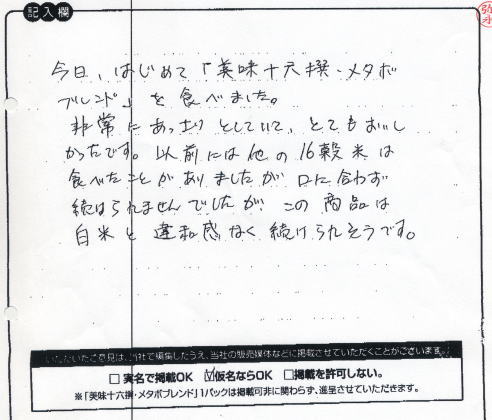 記入欄
今日、はじめて「美味十六撰・メタボ
ブレンド」を食べました。
非常にあっさりとしていて、とてもおいし
かったです。以前には他の16穀米は
食べたことがありましたが口に合わず
続けられませんでしたが、この商品は
白米と違和感なく続けられそうです。
いただいたご意見は、当社で編集したうえ、当社の販売媒体などに掲載させていただくことがございます。
□ 実名で掲載OK ☑仮名ならOK □掲載を許可しない。
※「美味十六撰・メタボブレンド」1パックは掲載可非に関わらず、進呈させていただきます。